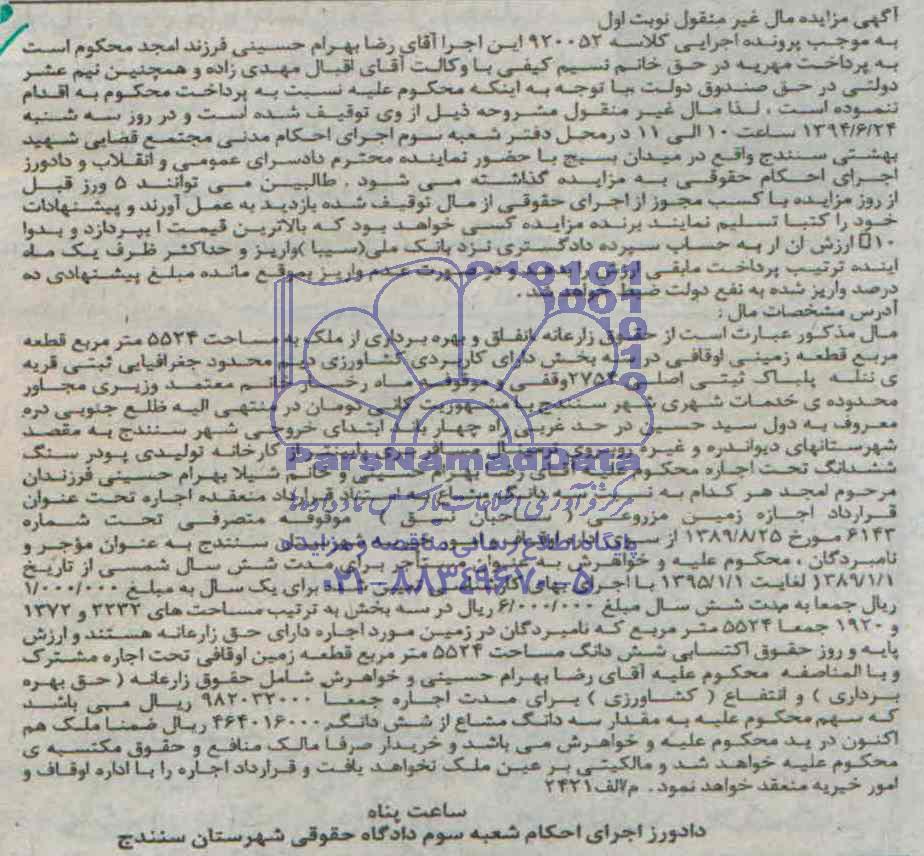 آگهی مزایده مال غیر منقول نوبت اول
به موجب پرونده اجرایی کلاسه ۹۲۰۰۵۲ این اجرا آقای رضا بهرام حسینی فرزند امجد محکوم است
به پرداخت مهریه در حق خانم نسیم کیفی با وکالت آقای اقبال مهدی زاده و همچنین نیم عشر
دولتی در حق صندوق دولت با توجه به اینکه محکوم علیه نسبت به پرداخت محکوم به اقدام
ننموده است ، لذا مال غیر منقول مشروحه ذیل از وی توقیف شده است و در روز سه شنبه
۱۳۹۴/۶/۲۴ ساعت ۱۰ الی ۱۱ درمحل دفتر شعبه سوم اجرای احکام مدنی مجتمع قضایی شهید
بهشتی سنندج واقع در میدان بسیج با حضور نماینده محترم دادسرای عمومی و انقلاب و دادورز
اجرای احکام حقوقی به مزایده گذاشته می شود . طالبین می توانند ۵ ورز قبل
از روز مزایده با کسب مجوز از اجرای حقوقی از مال توقیف شده بازدید به عمل آورند و پیشنهادات
خود را کتبا تسلیم نمایند برنده مزایده کسی خواهد بود که بالاترین قیمت ا بپردازد و بدوا
۱۰٪ ارزش ان ار به حساب سپرده دادگستری نزد بانک ملی(سیبا )واریز و حداکثر ظرف یک ماه
اینده ترتیب پرداخت مابقی ارزش را بدهد و در صورت عدم واریز بموقع مانده مبلغ پیشنهادی ده
درصد واریز شده به نفع دولت ضبط خواهد شد .
آدرس مشخصات مال :
مال مذکور عبارت است از حقوق زارعانه انفلاق و بهره برداری از ملک به مساحت ۵۵۲۴ متر مربع قطعه
مربع قطعه زمینی اوقافی در سه بخش دارای کاربردی کشاورزی در محدود جغرافیایی ثبتی قریه
ی ننله پلاک ثبتی اصلی ۲۷۵۴ وقفی و موقوفه ماه رخسار خانم معتمد وزیری مجاور
محدوده ی خدمات شهری شهر سنندج با مشهوریت کانی تومان در منتهی الیه ظلع جنوبی دره
معروف به دول سید حسین در حد غربی راه چهار باند ابتدای خروجی شهر سنندج به مقصد
شهرستانهای دیواندره و غیره روبروی ترمینال مسافربری پایینتر از کارخانه تولیدی پودر سنگ
ششدانگ تحت اجاره محکوم علیه آقای رضا بهرام حسینی و خانم شیلا بهرام حسینی فرزندان
مرحوم امجد هر کدام به نسبت سه دانگ مشاع به استناد قرارداد منعقده اجاره تحت عنوان
قرارداد اجازه زمین مزروعی ( صاحبان نسق ) موقوفه متصرفی تحت شماره
۶۱۴۳ مورخ ۱۳۸۹/۸/۲۵ از سوی اداره اوقاف و امور خیریه شهرستان سنندج به عنوان مؤجر و
نامبردگان ، محکوم علیه و خواهرش به عنوان مستاجر برای مدت شش سال شمسی از تاریخ
۱۳۸۹/۱/۱ لغایت ۱۳۹۵/۱/۱ با اجرای بهای کارشناسی تعیین شده برای یک سال به مبلغ ۱/۰۰۰/۰۰۰
ریال جمعا به مدت شش سال مبلغ ۶/۰۰۰/۰۰۰ ریال در سه بخش به ترتیب مساحت های ۲۲۳۲ و ۱۳۷۲
و ۱۹۲۰ جمعا ۵۵۲۴ متر مربع که نامبردگان در زمین مورد اجاره دارای حق زارعانه هستند و ارزش
پایه و روز حقوق اکتسابی شش دانگ مساحت ۵۵۲۴ متر مربع قطعه زمین اوقافی تحت اجاره مشترک
و بالمناصفه محکوم علیه آقای رضا بهرام حسینی و خواهرش شامل حقوق زارعانه ( حق بهره
برداری ) و انتفاع ( کشاورزی ) برای مدت اجاره جمعا ۹۸۲۰۳۲۰۰۰ ریال می باشد
که سهم محکوم علیه به مقدار سه دانگ مشاع از شش دانگ ۴۶۴۰۱۶۰۰۰ ریال ضمنا ملک هم
اکنون در ید محکوم علیه و خواهرش می باشد و خریدار صرفا مالک منافع و حقوق مکتسبه ی
محکوم علیه خواهد شد و مالکیتی بر عین ملک نخواهد یافت و قرارداد اجاره را با اداره اوقاف و
امور خیریه منعقد خواهد نمود . م/الف ۲۴۲۱
ساعت پناه
دادورز اجرای احکام شعبه سوم دادگاه حقوقی شهرستان سنندج
ParsNamadData
مرکز فرآوری اطلاعات پارس نماد داده ها
پایگاه اطلاع رسانی مناقصه و مزایده
۰۲۱-۸۸۳۴۹۶۷۰-۵